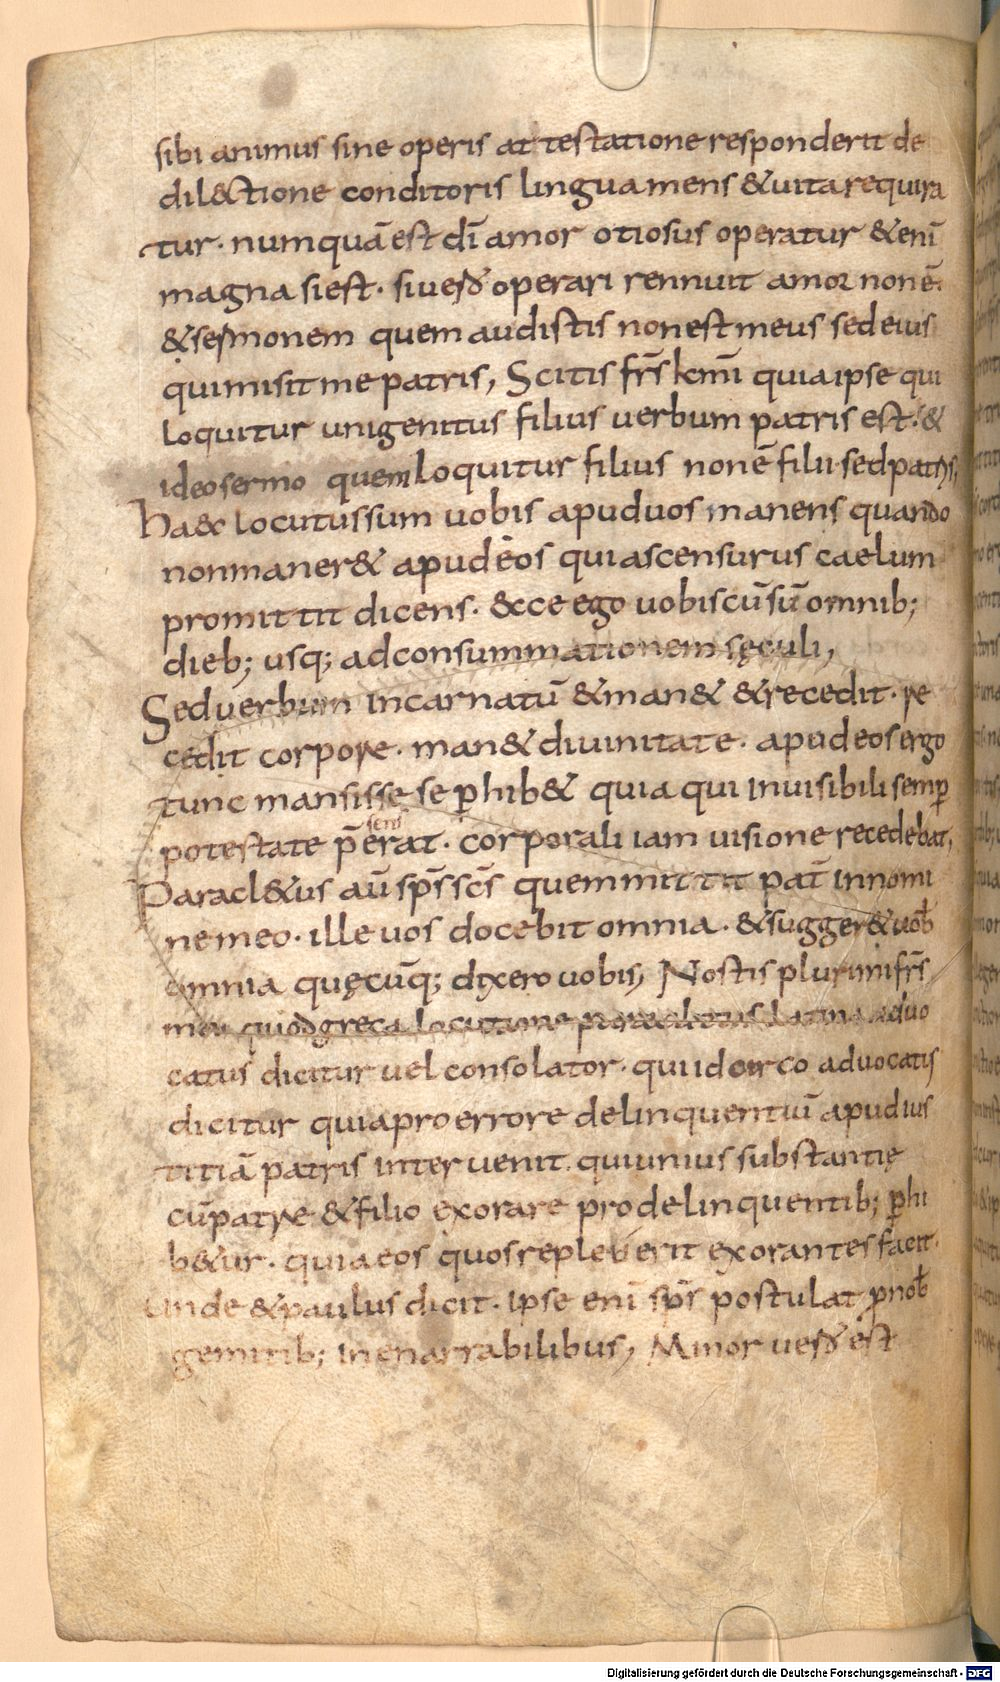 sibi animus sine operis attestatione responderit de
dil&ctione conditoris lingua mens & uita requira
tur · numquā est dī amor otiosus operatur & enī
magna si est · si ue&rō operari rennuit amor non ē·
& sermonem quem audistis non est meus sed eius
qui misit me patris, Scitis frs̄ kmī quia ipse qui
loquitur unigenitus filius uerbum patris est · &
ideo sermo quem loquitur filius non ē filii · sed patris,
Ha&c locutus sum uobis apud uos manens quando
non maner& apud eos qui ascensurus caelum
promittit dicens · &cce ego uobiscū sū omnib;
dieb; usq; ad consummationem sęculi,
Sed uerbum incarnatū & man& & recedit · re
cedit corpore · man& diuinitate · apud eos ergo
tunc mansisse se ꝑhib& quia qui inuisibili semꝑ
potestate p̄serat · corporali iam uisione recedebat,
sens
Paracl&us aū sp̄s sc̄s quem mittit pat̄ in nomi
ne meo · ille uos docebit omnia · & sugger& uob̄
omnia quęcūq; dixero uobis, Nostis plurimi frs̄
mei quod greca locutione paraclitus latina aduo
catus dicitur uel consolator · qui idcirco aduocatis
dicitur quia pro errore delinquentiū apud ius
titiā patris interuenit · qui unius substantię
cū patre & filio exorare pro delinquentib; ꝑhi
b&ur · quia eos quos repleuerit exorantes facit ·
Unde & paulus dicit · ipse enī sp̄s postulat ꝓ nob̄
gemitib; inenarrabilibus, Minor uerō est
Digitalisierung gefördert durch die Deutsche Forschungsgemeinschaft - DFG